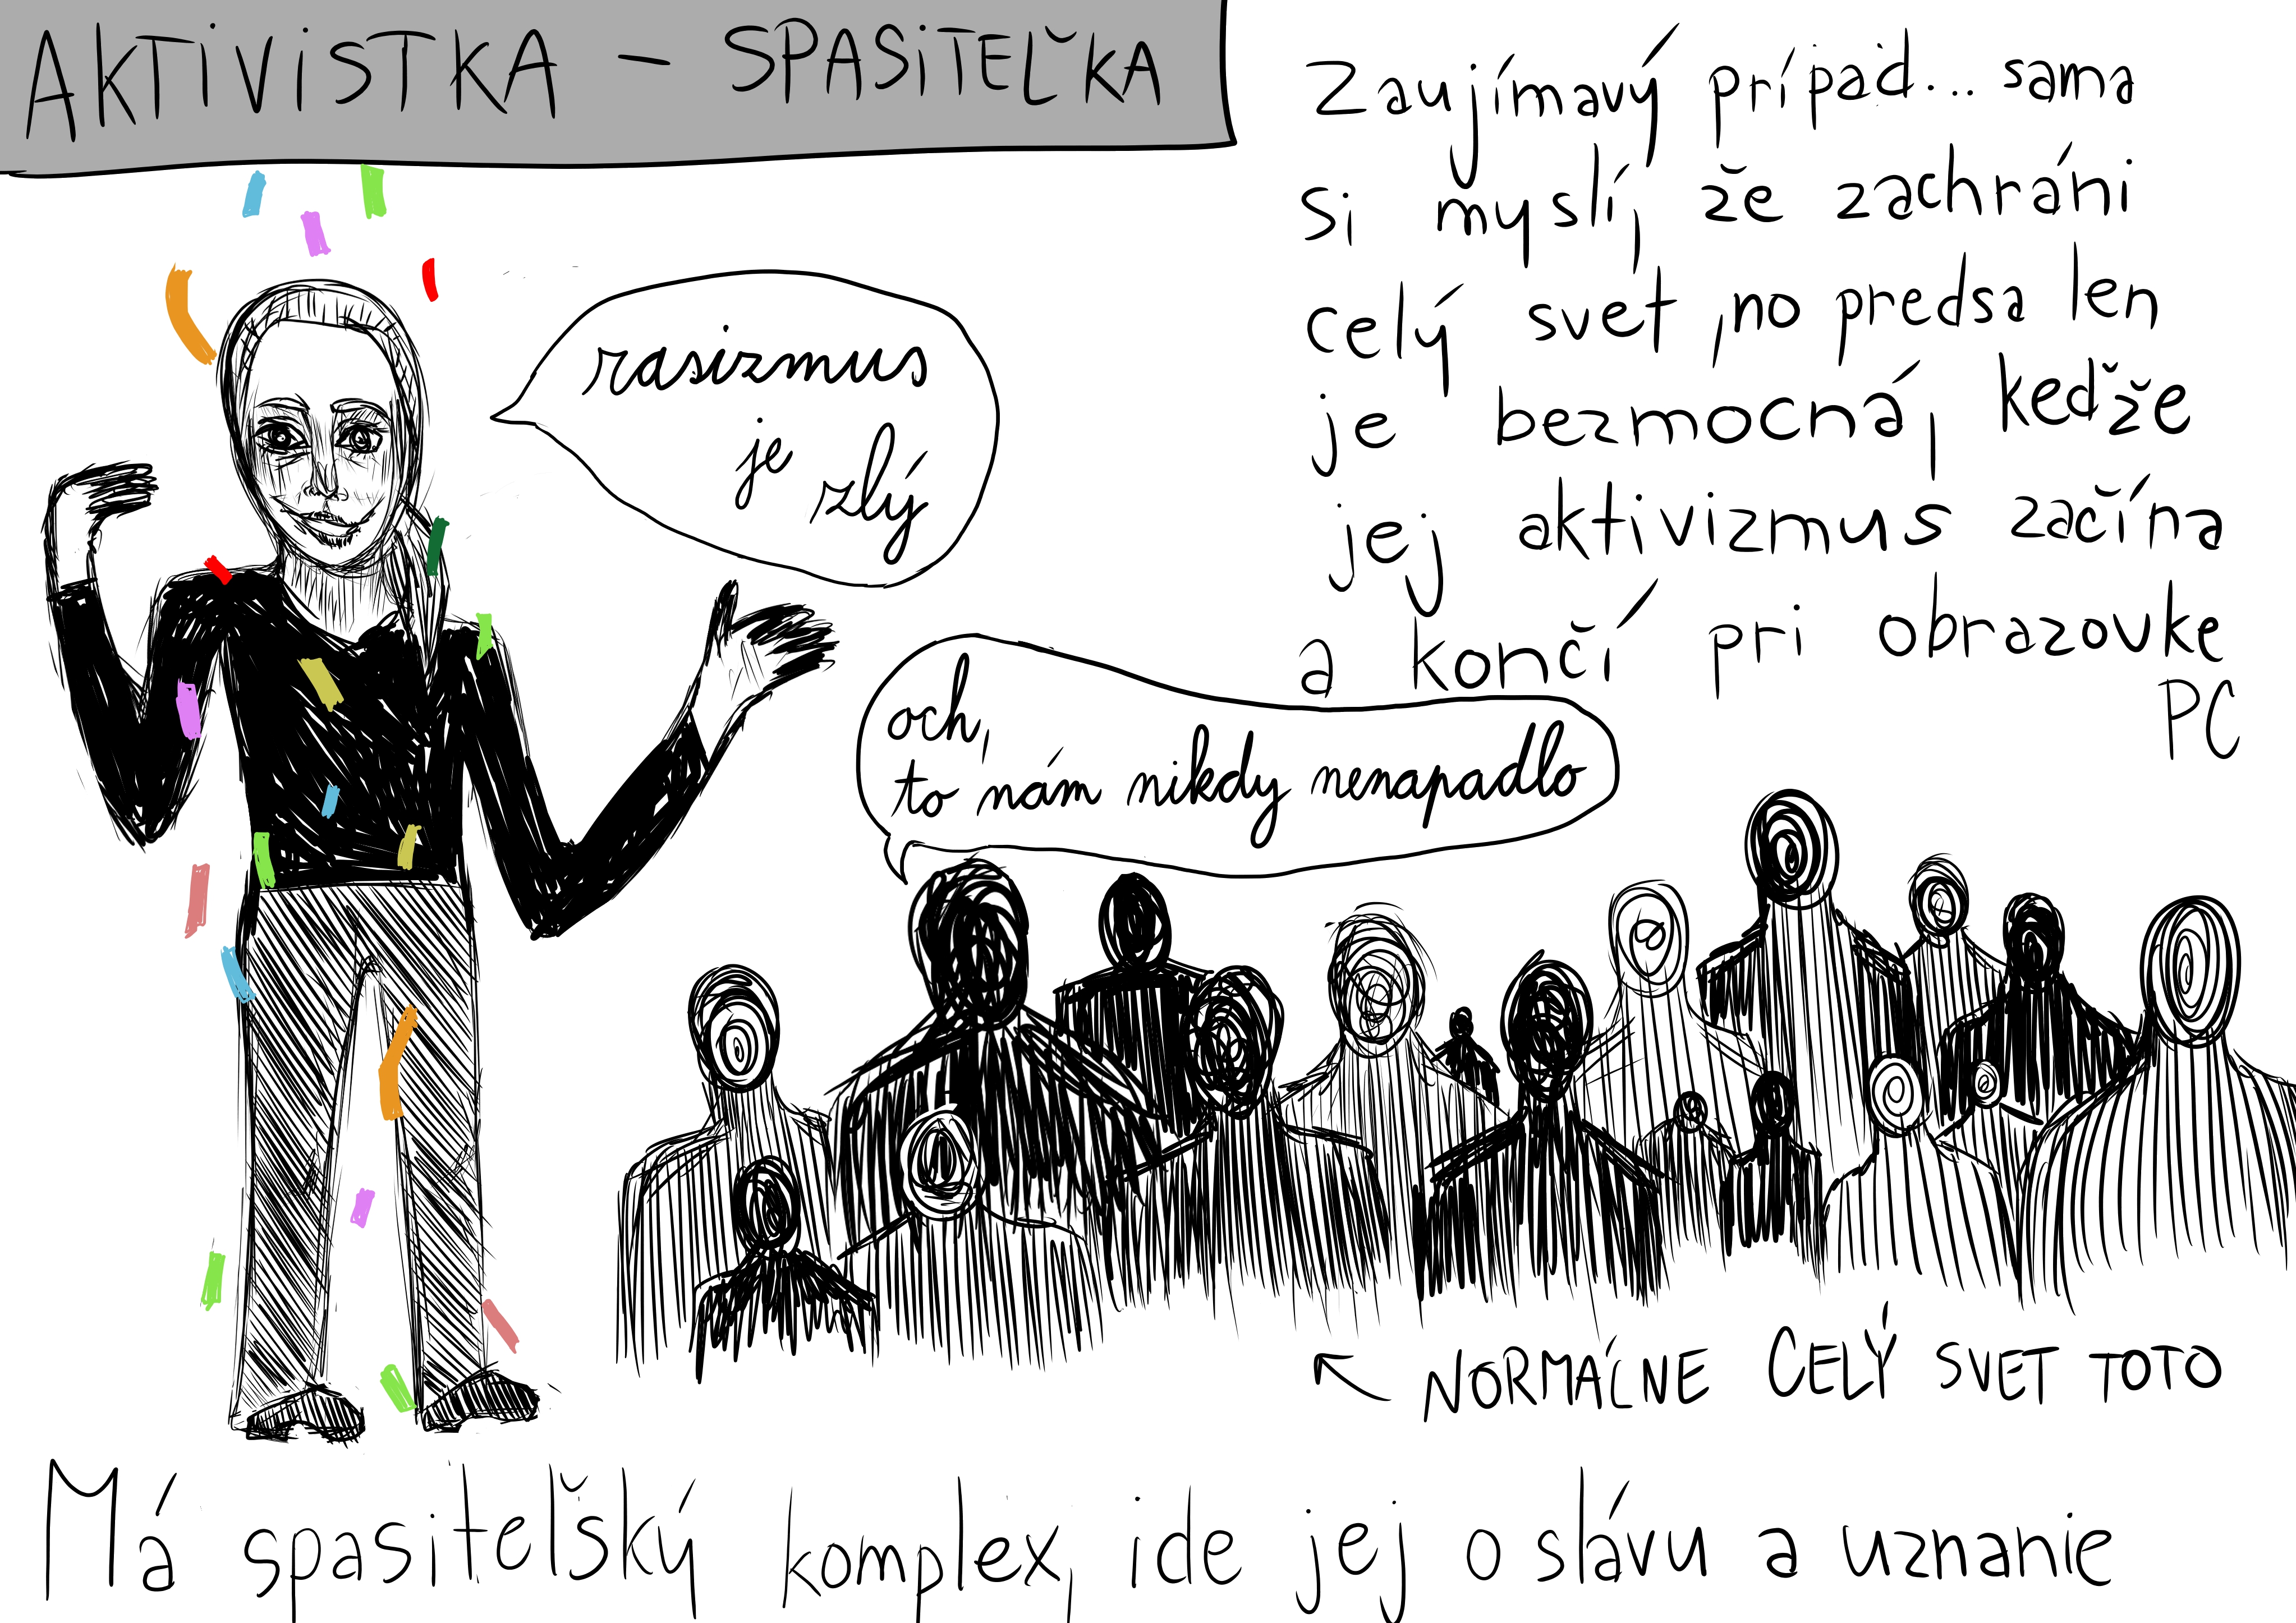 AKTiViSTKA – SPASiTEĽKA
Zaujímavý prípad... sama
si myslí, že zachráni
celý svet, no predsa len
je bezmocná, keďže
jej aktivizmus začína
a končí pri obrazovke
PC
rasizmus
je
zlý
och,
to nám nikdy nenapadlo
← NORMÁLNE CELÝ SVET TOTO
Má spasiteľský komplex, ide jej o slávu a uznanie